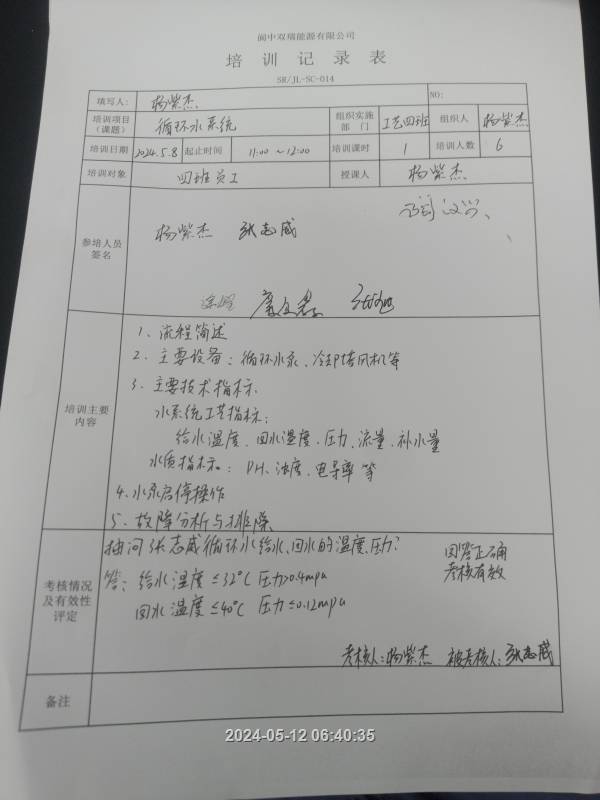 阆中双瑞能源有限公司
培训记录表
SR/JL-SC-014
填写人: 杨紫杰 NO:
培训项目（课题） 循环水系统 组织实施部门 工艺四班 组织人 杨紫杰
培训日期 2024.5.8 起止时间 11:00 ~12:00 培训课时 1 培训人数 6
培训对象 四班员工 授课人 杨紫杰
参培人员签名
杨紫杰 张志威
培训主要内容
1、流程简述
2、主要设备：循环水泵、冷却塔风机等
3、主要技术指标
水系统工艺指标：
给水温度、回水温度、压力、流量、补水量
水质指标：PH、浊度、电导率等
4、水泵启停操作
5、故障分析与排除
考核情况及有效性评定
抽问张志威循环水给水、回水的温度、压力？
答：给水温度≤32℃ 压力>0.4mpa
回水温度≤40℃ 压力≤0.12mpa
回答正确
考核有效
考核人：杨紫杰 被考核人：张志威
备注
2024-05-12 06:40:35